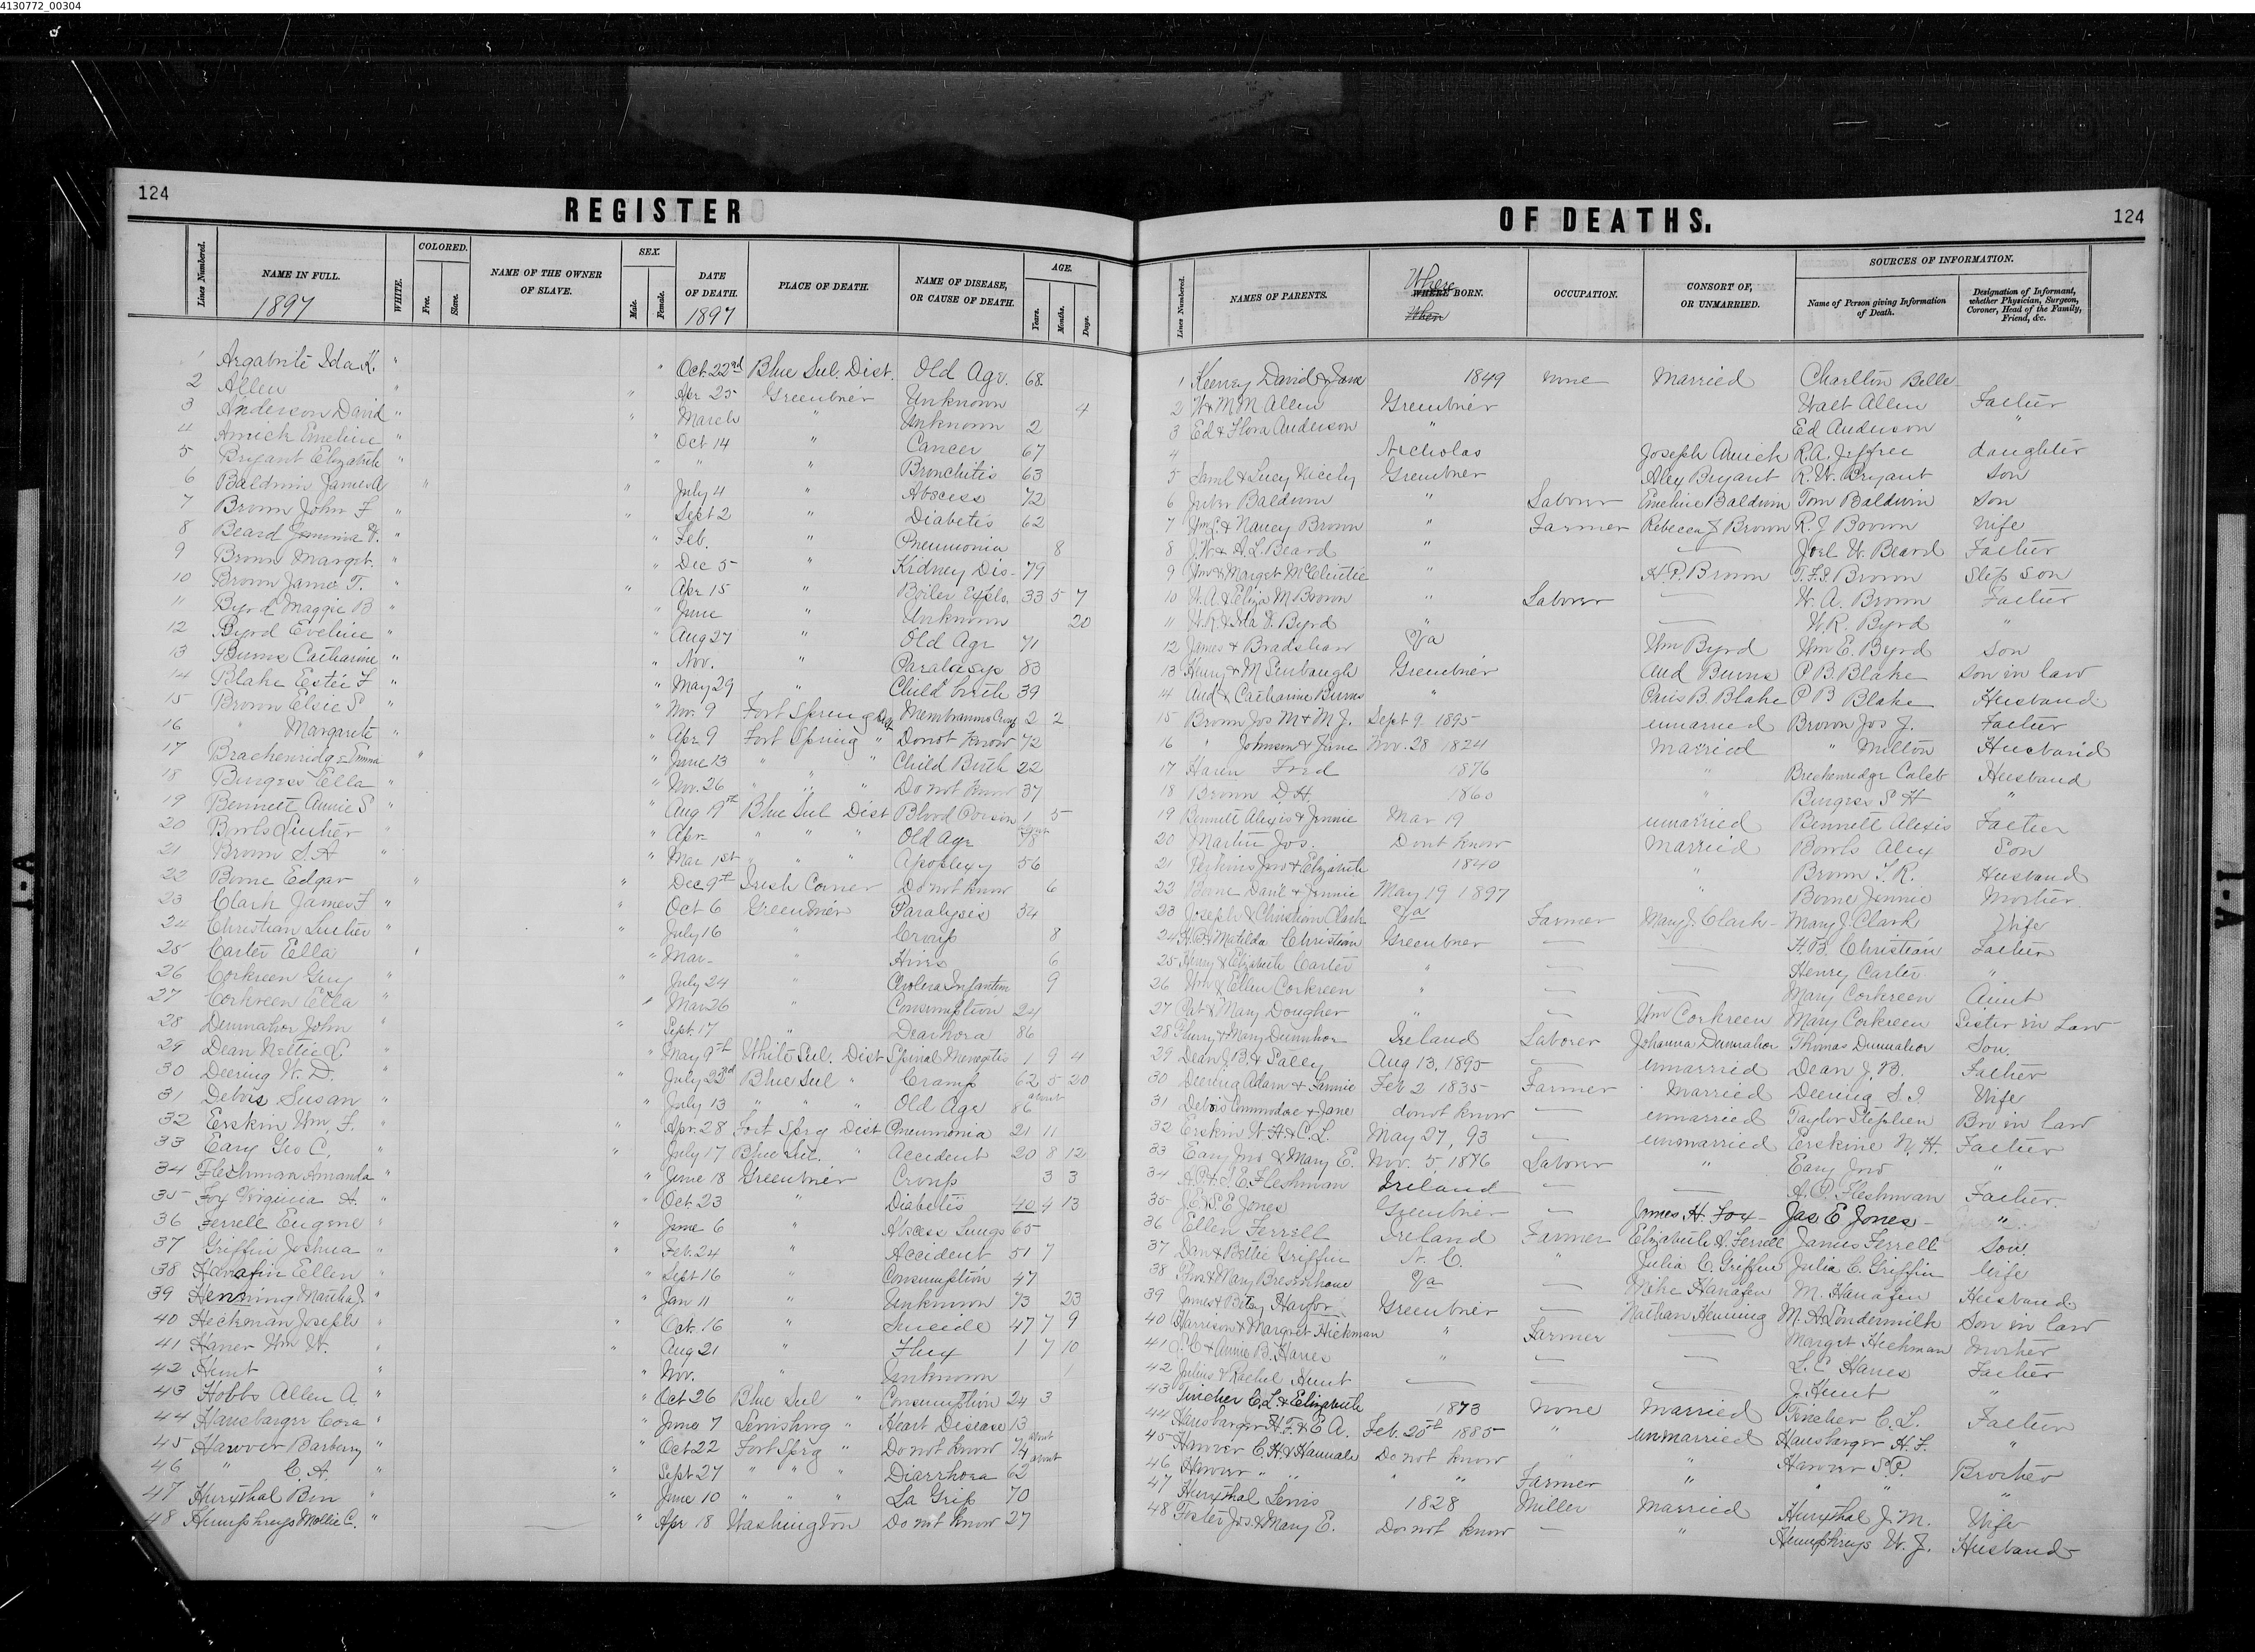 4130772_00304
124
REGISTER OF DEATHS.
124
Lines Numbered. NAME IN FULL. 1897 WHITE. COLORED. Free. Slave. NAME OF THE OWNER OF SLAVE. SEX. Male. Female. DATE OF DEATH. 1897 PLACE OF DEATH. NAME OF DISEASE, OR CAUSE OF DEATH. AGE. Years. Months. Days.
Lines Numbered. NAMES OF PARENTS. Where WHERE BORN. When OCCUPATION. CONSORT OF, OR UNMARRIED. SOURCES OF INFORMATION. Name of Person giving Information of Death. Designation of Informant, whether Physician, Surgeon, Coroner, Head of the Family, Friend, &c.
1 Argabrite Ida K. " " Oct. 22nd Blue Sul. Dist. Old Age. 68
2 Allen " " Apr 25 Greenbrier Unknown 4
3 Anderson David " " March " Unknown 2
4 Amick Emeline " " Oct 14 " Cancer 67
5 Bryant Elizabeth " " " " Bronchitis 63
6 Baldwin James A " " July 4 " Abscess 72
7 Brown John F " " Sept 2 " Diabetis 62
8 Beard Jemima " " Feb. " Pneumonia 8
9 Brown Marget. " " Dec 5 " Kidney Dis- 79
10 Brown James T. " " Apr 15 " Boiler Explo. 33 5 7
11 Byrd Maggie B " " June " Unknown 20
12 Byrd Eveline " " Aug 27 " Old Age 71
13 Burns Catharine " " Nov. " 83
14 Blake Estie F " " May 29 " Child birth 39
15 Brown Elsie S " " Nov. 9 Fort Spring Membranous Croup 2 2
16 " Margarete " " Apr 9 Fort Spring " Do not Know 72
17 Brackenridge Emma " " June 13 " " Child Birth 22
18 Burgess Ella " " Nov. 26 " " " Do not Know 37
19 Bennett Annie S " " Aug 19th Blue Sul Dist Blood Poison 1 5
20 Bowls Luther " " Apr. " " " Old Age 78
21 Brown S. A " " Mar 1st " " " Apoplexy 56
22 Bone Edgar " " Dec 9th Irish Corner Do not know 6
23 Clark James F " " Oct 6 Greenbrier Paralysis 34
24 Christian Luther " " July 16 " Croup 8
25 Carter Ella " " Mar- " Hives 6
26 Corkreen Guy " " July 24 " Cholera Infantum 9
27 Corkreen Ella " " Mar 26 " Consumption 24
28 Dunnahor John " " Sept. 17 " 86
29 Dean Nettie L. " " May 9th White Sul. Dist Spinal Menegetis 1 9 4
30 Deering W. D. " " July 22nd Blue Sul " Cramp 62 5 20
31 Debois Susan " " July 13 " " " Old Age about 86
32 Erskin Wm. F. " " Apr. 28 Fort Sprg Dist Pneumonia 21 11
33 Eary Geo C. " " July 17 Blue Sul. " Accident 20 8 12
34 Fleshman Amanda " " June 18 Greenbrier Croup 3 3
35 Fox Virginia A. " " Oct. 23 " Diabetis 40 4 13
36 Ferrell Eugene " " June 6 " Abscess Lungs 65
37 Griffin Joshua " " Feb. 24 " Accident 51 7
38 Hanafin Ellen " " Sept 16 " Consumption 47
39 Henning Martha J. " " Jan 11 " Unknown 73 23
40 Hickman Joseph " " Oct. 16 " Sueeide 47 7 9
41 Haner Wm W. " " Aug 21 " Flux 1 7 10
42 Hunt " " Nov. " Unknown 1
43 Hobbs Allen A " " Oct 26 Blue Sul " Consumption 24 3
44 Hansbarger Cora " " June 7 Lewisburg " Heart Disease 13
45 Hanver Barberry " " Oct 22 Fort Sprg " Do not know about 74
46 " C. A. " " Sept 27 " " " Diarrhoea about 62
47 Hurxthal Ben " " June 10 " " " La Grip 70
48 Humphreys Mollie C. " " Apr 18 Washington Do not know 27
1 Keeney David & Jane 1849 none Married Charlton Belle
2 W & M M Allen Greenbrier Walt Allen Father
3 Ed & Flora Anderson " Ed Anderson "
4 Nicholas Joseph Amick R. A. Jeffree daughter
5 Saml & Lucy Nicely Greenbrier Aley Bryant R. W. Bryant Son
6 Juber Baldwin " Laborer Emeline Baldwin Tom Baldwin Son
7 & Nancy Brown " Farmer Rebecca J Brown R. J Brown Wife
8 J. W & A. L. Beard " Joel W. Beard Father
9 Wm & Marget McClintic " H. P. Brown T. F. J. Brown Step Son
10 W. A. & Eliza M Brown " Laborer W. A. Brown Father
11 W. R & Ida V. Byrd " W. R. Byrd "
12 James & Bradshaw Va Wm Byrd Wm E. Byrd Son
13 Henry & M Greenbrier And Burns P B. Blake Son in law
14 And & Catharine Burns " Paris B. Blake P B Blake Husband
15 Brown Jos M & M J. Sept 9 1895 unmarried Brown Jos J. Father
16 " Johnson & Jane Nov. 28 1824 Married " Milton Husband
17 Fred 1876 " Breckenridge Caleb Husband
18 Brown D. H. 1860 " Burgess S H "
19 Bennett Alexis & Jennie Mar 19 unmarried Bennett Alexis Father
20 Martin Jos. Dont know Married Bowls Alex Son
21 Perkins Jno & Elizabeth 1840 " Brown T. R. Husband
22 Bone & Jennie May 19 1897 " Bone Jennie Mother
23 Joseph & Christian Clark Va Farmer Mary J. Clark- Mary J. Clark Wife
24 H. B & Matilda Christian Greenbrier H. B. Christian Father
25 Henry & Elizabeth Carter " Henry Carter "
26 Wm & Ellen Corkreen " Mary Corkreen Aunt
27 Pat & Mary Dougher " Wm Corkreen Mary Corkreen Sister in Law
28 & Mary Dunnhor Ireland Laborer Johanna Dunnahor Thomas Dunnahor Son.
29 Dean J. B. & Sally Aug 13, 1895 unmarried Dean J. B. Father
30 Deering Adam & Fannie Feb 2 1835 Farmer Married Deering S. J Wife
31 Debois Commodore & Jane do not know unmarried Taylor Stephen Bro in law
32 Erskin W. H. & C. L. May 27, 93 unmarried Erskine W. H. Father
33 Eary Jno & Mary E. Nov. 5, 1876 Laborer " Eary Jno "
34 A. P. & E. Fleshman Ireland A. P. Fleshman Father
35 J. E. & E Jones Greenbrier James H. Fox- Jas E Jones- "
36 Ellen Ferrell Ireland Farmer Elizabeth A. Ferrell James Ferrell Son
37 Dan & Bettie Griffin N. C. " Julia C. Griffin Julia C. Griffin Wife
38 Thos & Mary Va Mike Hanafin M. Hanafin Husband
39 James & Betsy Greenbrier Nathan Henning M. A. Lendermilk Son in law
40 Harrison & Margret Hickman " Farmer Marget Hickman Mother
41 & Annie B. Hanes " L. C Hanes Father
42 Julius & Rachel Hunt J Hunt "
43 Tincher C. L. & Elizabeth 1873 None Married Tincher C. L. Father
44 Hansbarger H. F. & E A. Feb. 25th 1885 " unmarried Hansbarger H. F. "
45 Hanver C. H. & Hannah Do not know " " Hanver S. P. Brother
46 Hanver " " " " Farmer " " " "
47 Hurxthal Lewis 1828 Miller Married Hurxthal J. M. Wife
48 Foster Jos. & Mary E. Do not know " Humphreys W. J. Husband